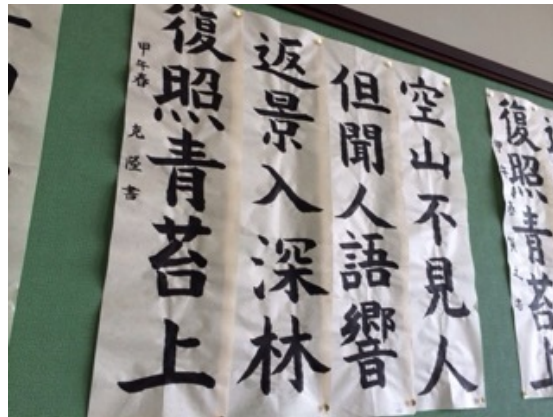 空山不見人
但聞人語響
返景入深林
復照青苔上
甲午春
書
復照青苔上
甲午